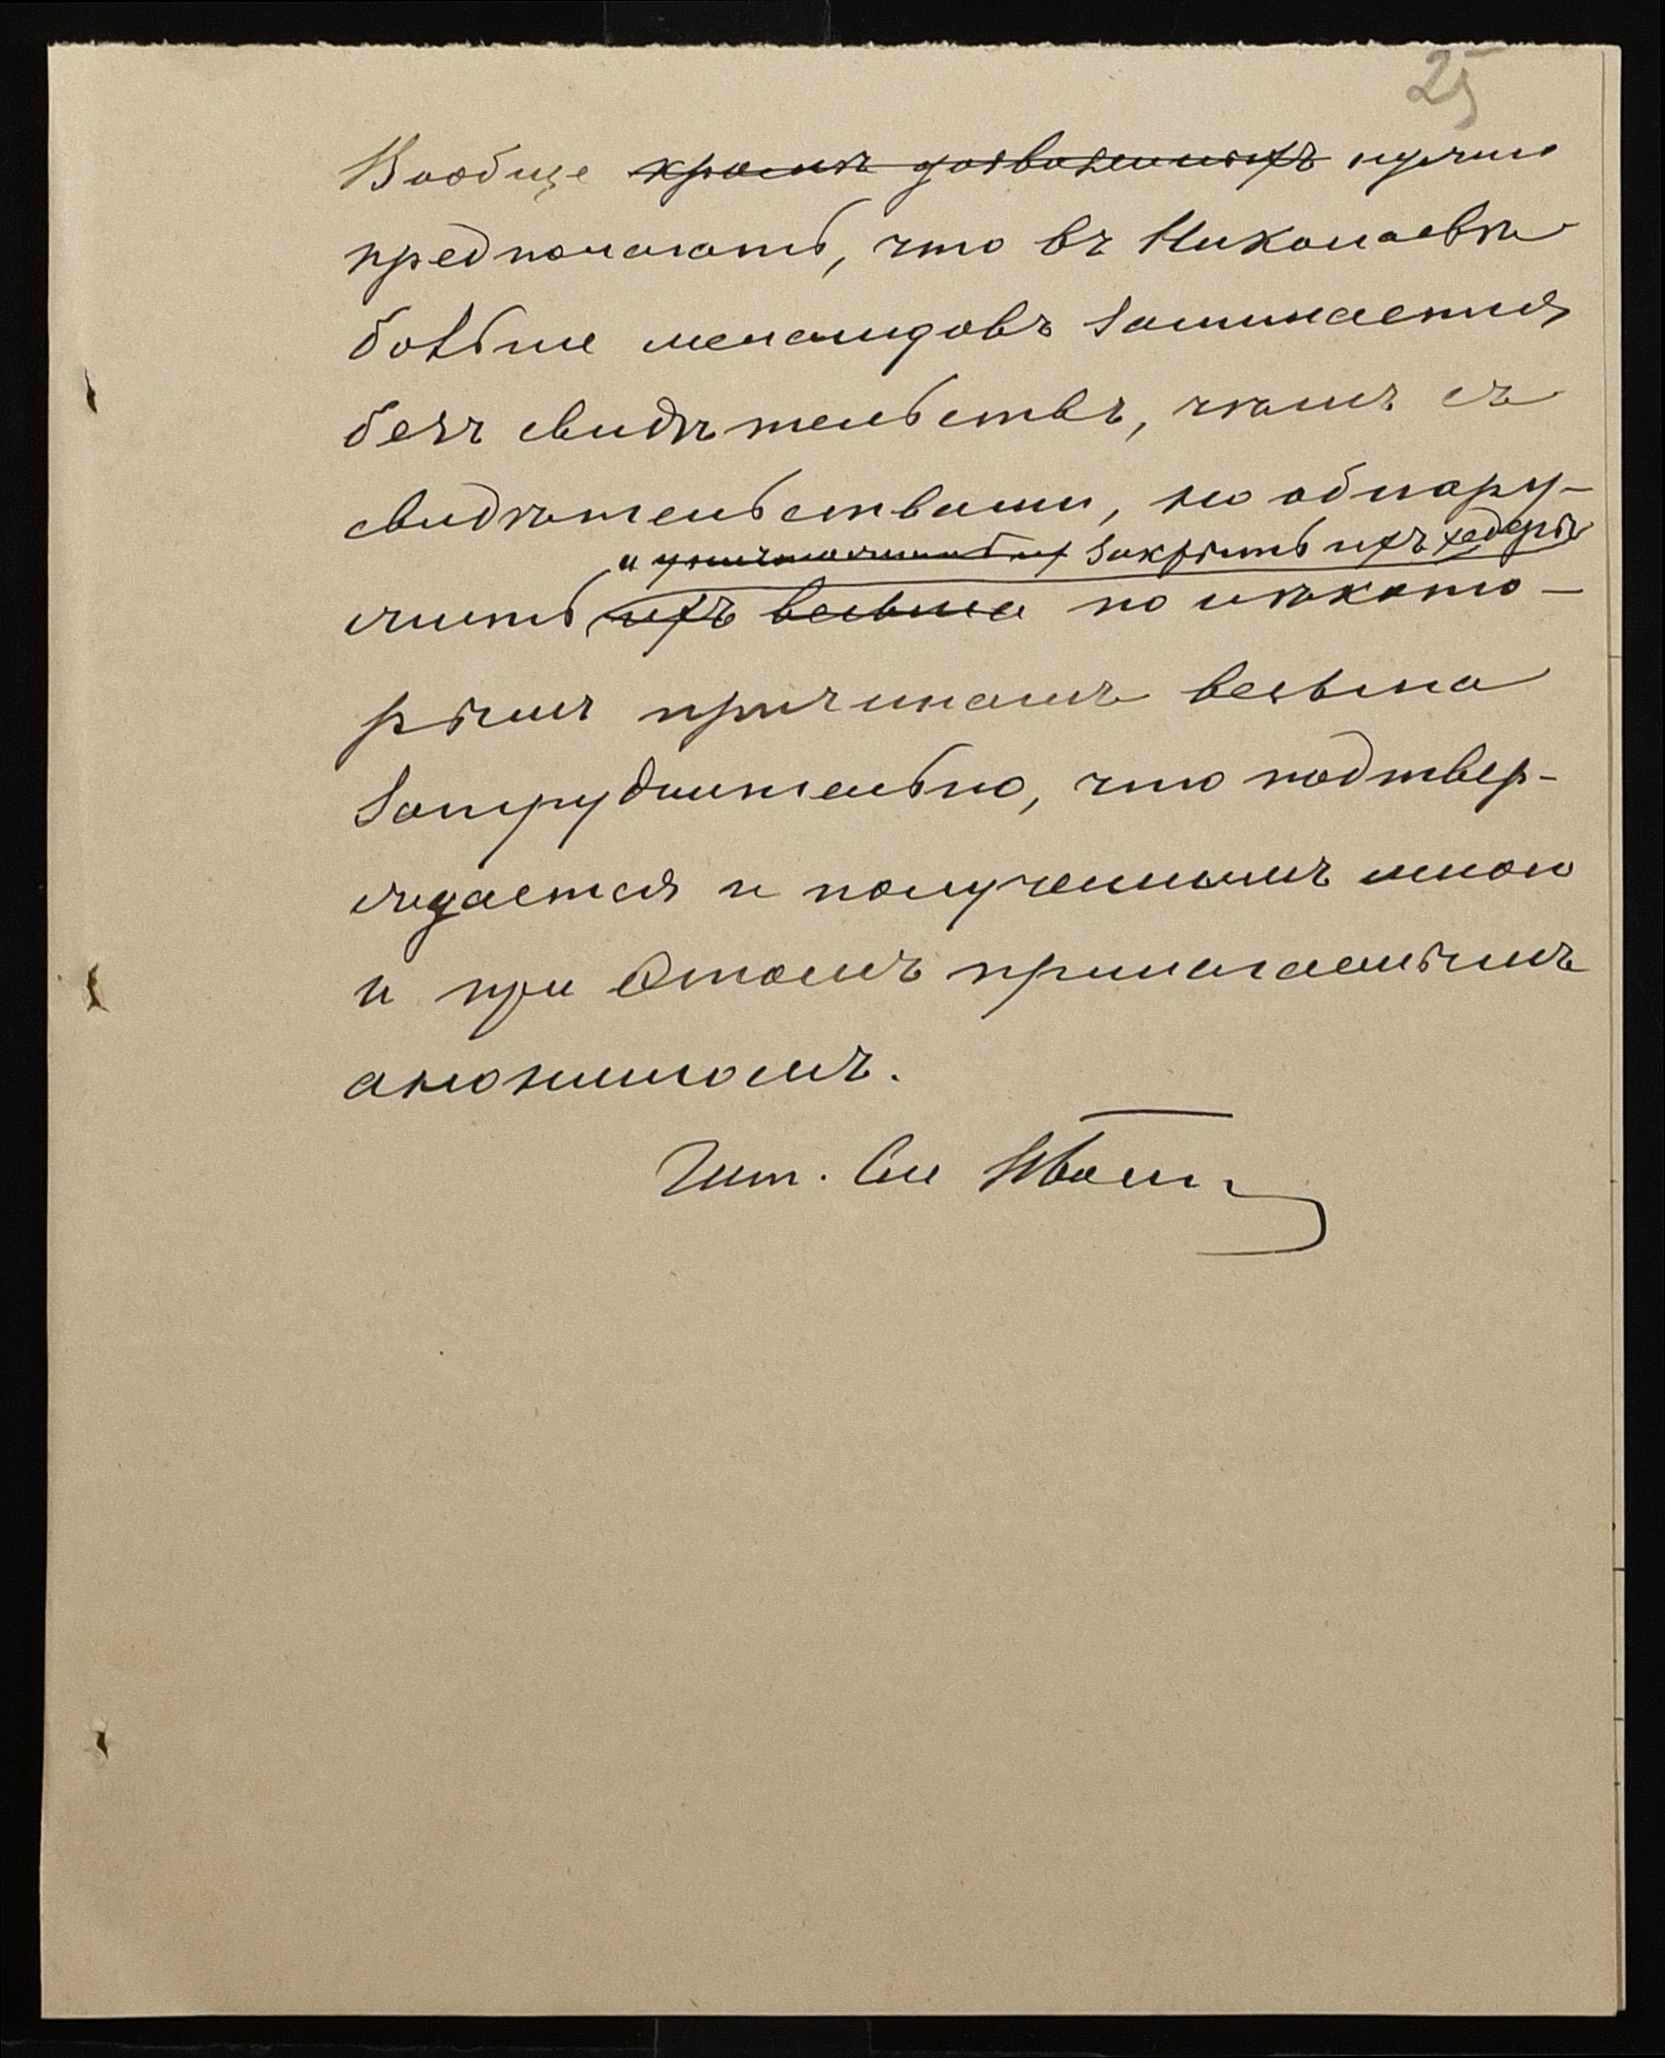 25
Вообще кромѣ дозволенныхъ нужно
предполагать, что въ Николаевѣ
больше меламдовъ занимается
безъ свидѣтельствъ, чѣмъ съ
свидѣтельствами, но обнару-
и закрыть ихъ хедеры
жить ихъ весьма по нѣкото-
рымъ причинамъ весьма
затруднительно, что подтвер-
ждается и полученнымъ мною
и при этомъ прилагаемымъ
анонимомъ.
Шт. См.